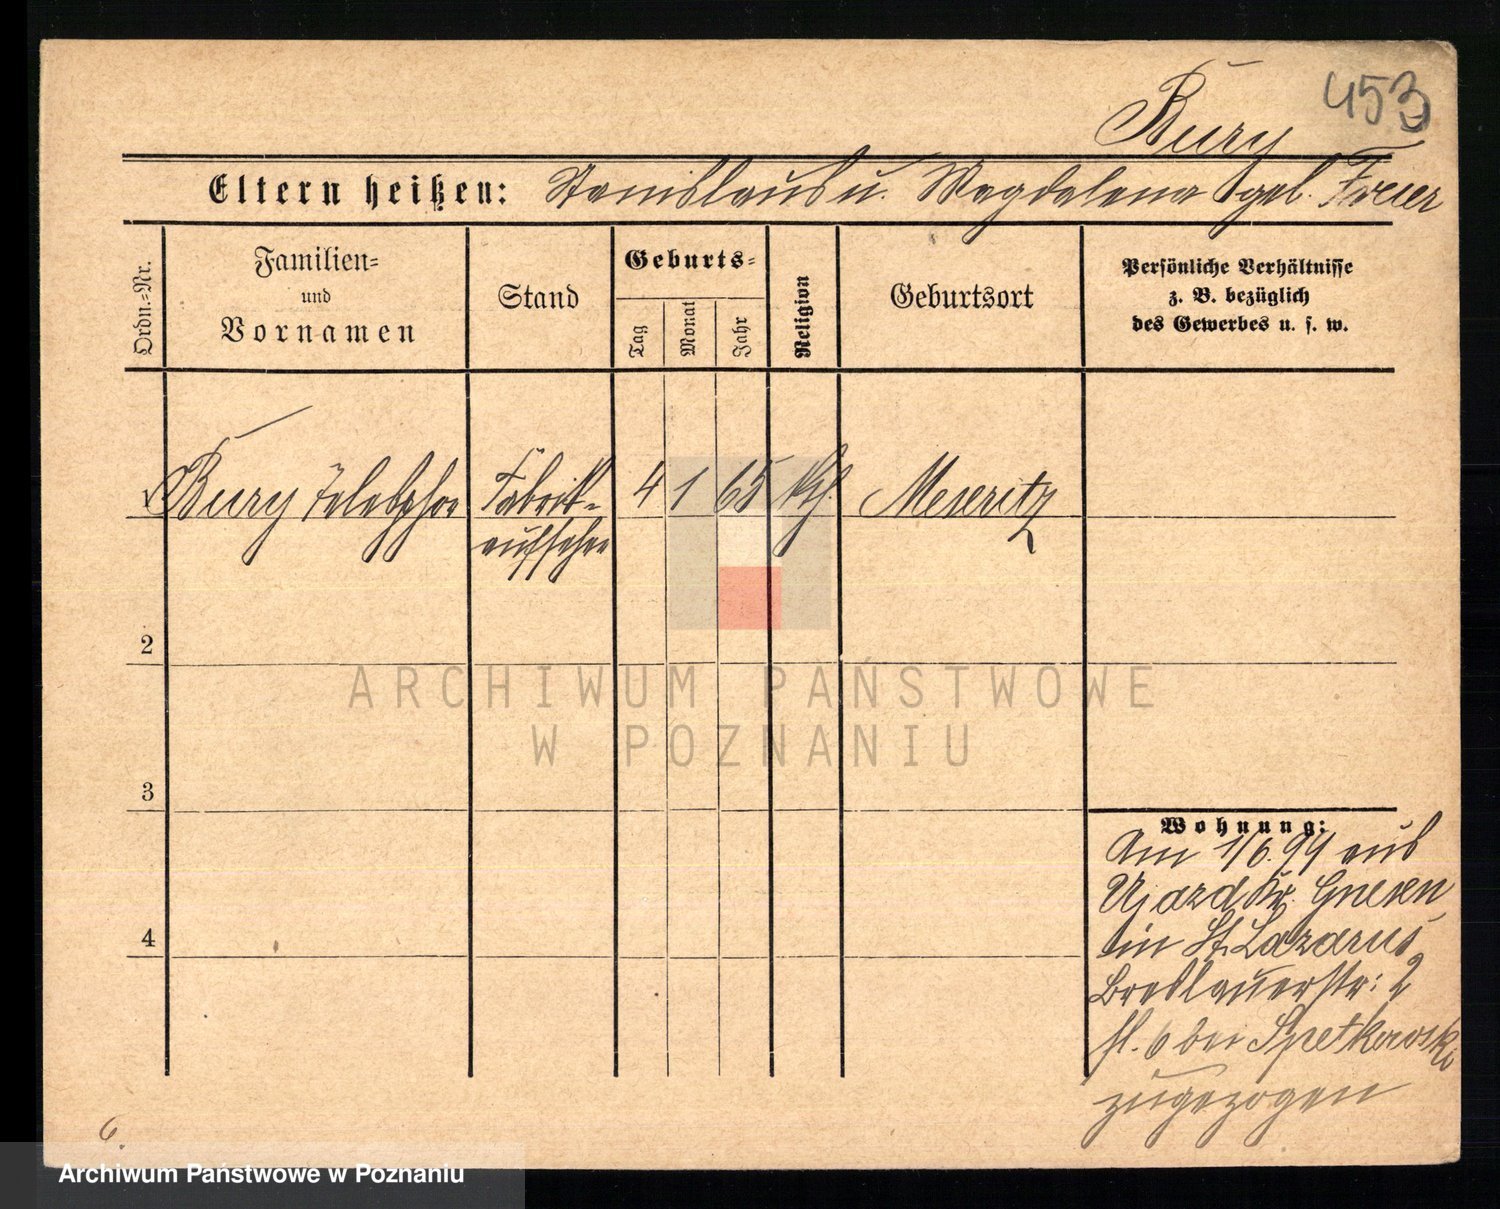 453
Bury
Eltern heißen: Stanislaus u. Magdalena geb. Freier
Ordn.=Nr.
Familien=
und
Vornamen
Stand
Geburts=
Tag
Monat
Jahr
Religion
Geburtsort
Persönliche Verhältnisse
z. B. bezüglich
des Gewerbes u. s. w.
1 Bury Telesphor Fabrik- 4 1 65 kth. Meseritz
aufseher
2
3
4
Wohnung:
Am 1/6. 94 aus
Ujazd Kr. Gnesen
in St. Lazarus
Breslauerstr: 2
bei Spetkowski
zugezogen
6.
ARCHIWUM PAŃSTWOWE
W POZNANIU
Archiwum Państwowe w Poznaniu